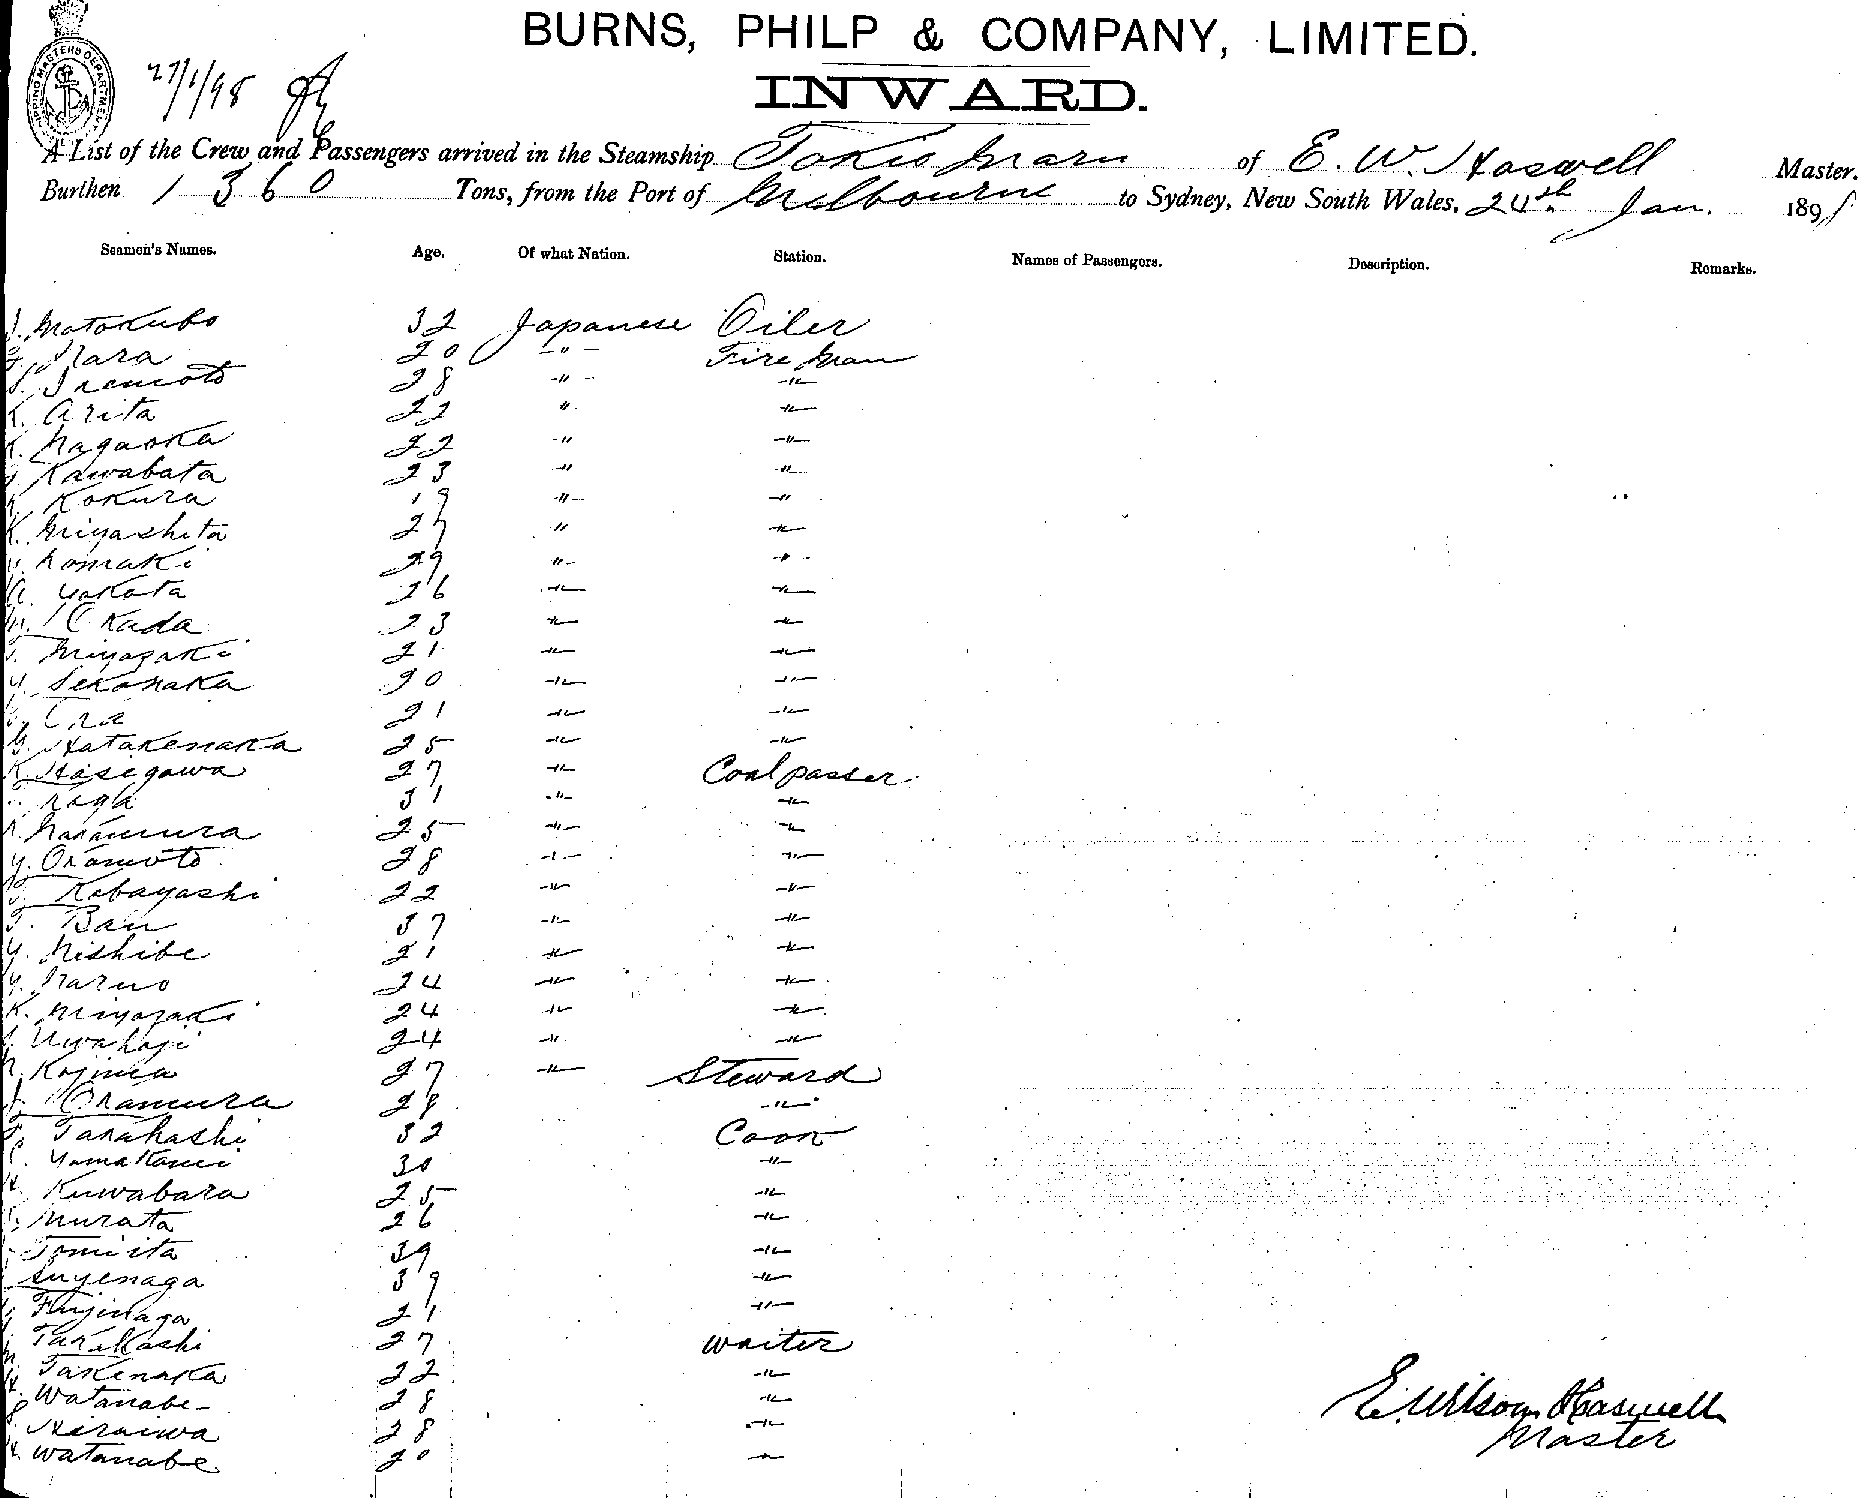 BURNS, PHILP & COMPANY, LIMITED.
INWARD.
SHIPPING MASTERS DEPARTMENT
27/1/98
A List of the Crew and Passengers arrived in the Steamship Tokio Maru of E. W. Haswell Master.
Burthen 1360 Tons, from the Port of Melbourne to Sydney, New South Wales, 24th Jan. 1898
Seamen's Names. Age. Of what Nation. Station. Names of Passengers. Description. Remarks.
Motokubo 32 Japanese Oiler
Hara 20 " Fireman
28 " "
K. Arita 22 " "
K. Nagaoka 22 " "
Kawabata 23 " "
Kokura 19 " "
K. Miyashita 27 " "
Komaki 29 " "
Yokota 26 " "
M. Okada 23 " "
T. Miyazaki 21 " "
Y. Sekanaka 20 " "
21 " "
G. Hatakenaka 25 " "
K. Hasigawa 27 " Coal passer
Koga 31 " "
Nakamura 25 " "
Y. Okamoto 28 " "
Kobayashi 22 " "
T. Ban 37 " "
Y. Nishibe 21 " "
Y. Haruo 24 " "
K. Miyazaki 24 " "
24 " "
Kojima 27 " Steward
Okamura 28 "
Takahashi 32 Cook
Yamakami 30 "
Kuwabara 25 "
Murata 26 "
Tomiita 39 "
Suyenaga 39 "
Fujinaga 21 "
Takahashi 27 Waiter
Takenaka 22 "
Watanabe 28 "
Hiraiwa 28 "
Watanabe 20 "
E. Wilson Haswell
Master